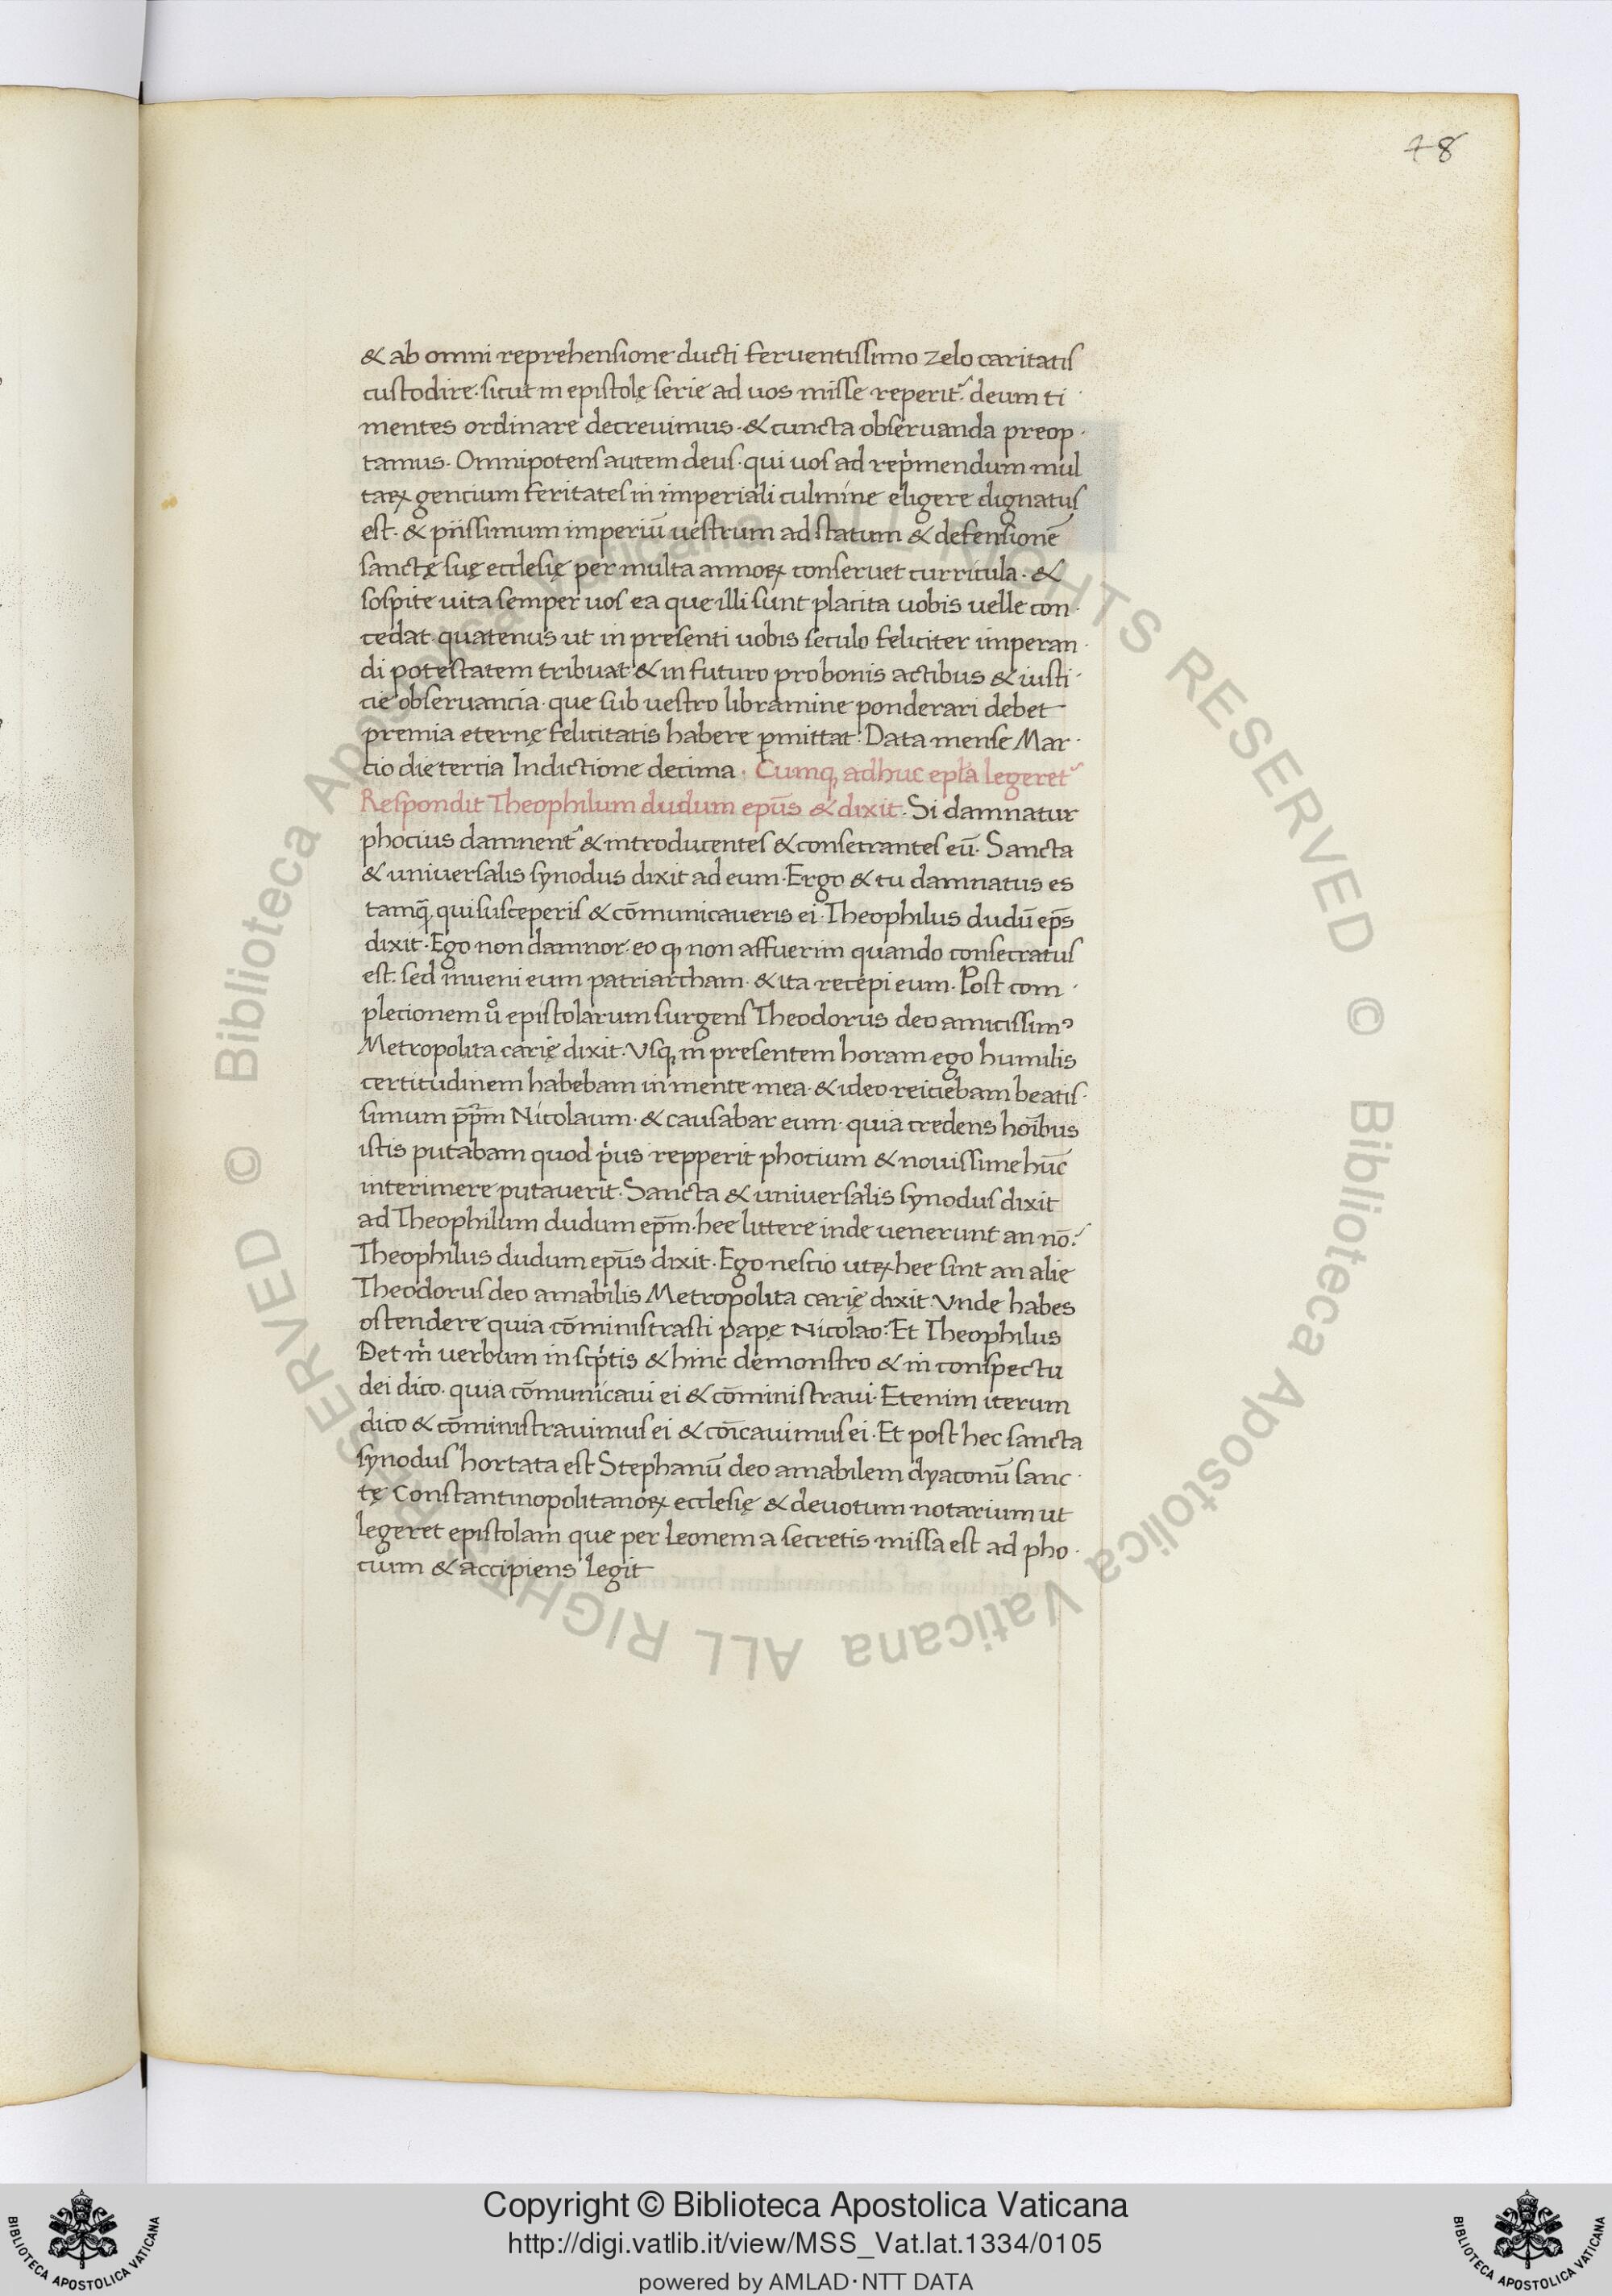 48
& ab omni reprehensione ducti feruentissimo zelo caritatis
custodire· sicut in epistolę serie ad uos misse reperit᷑· deum ti
mentes ordinare decreuimus· & cuncta obseruanda preop·
tamus· Omnipotens autem deus· qui uos ad rep̍mendum mul
taꝝ gencium feritates in imperiali culmine eligere dignatus
est· & piissimum imperiū uestrum ad statum & defensionē
sanctę suę ecclesię per multa annoꝝ conseruet curricula· &
sospite uita semper uos ea que illi sunt placita uobis uelle con·
cedat quatenus ut in presenti uobis seculo feliciter imperan·
di potestatem tribuat & in futuro pro bonis actibus & iusti·
cie obseruancia· que sub uestro libramine ponderari debet
premia eternę felicitatis habere ꝑmittat: Data mense Mar·
cio die tercia Indictione decima· Cumq; adhuc epl̄a legeret᷑
Respondit Theophilum dudum ep̄us & dixit· Si damnatur
phocius damnent᷑ & introducentes & consecrantes eū· Sancta
& universalis synodus dixit ad eum· Ergo & tu damnatus es
tamq̄; qui susceperis & cōmunicaueris ei· Theophilus dudū ep̄s
dixit· Ego non damnor· eo q; non affuerim quando consecratus
est· sed inueni eum patriarcham· & ita recepi eum· Post com·
plecionem uͦ epistolarum surgens Theodorus deo amicissimꝰ
Metropolita carię dixit· Vsq; in presentem horam ego humilis
certitudinem habebam in mente mea· & ideo reiciebam beatis·
simum pp̄m Nicolaum· & causabar eum· quia credens hoī̄bus
istis putabam quod p̍us repperit phocium & nouissime hūc
interimere putauerit· Sancta & universalis synodus dixit
ad Theophilum dudum ep̄m· hee littere inde uenerunt an nō?
Theophilus dudum ep̄us dixit· Ego nescio utꝝ hee sint an alie
Theodorus deo amabilis Metropolita carię dixit· Vnde habes
ostendere quia cōministrasti papę Nicolao? Et Theophilus
Det m̍ uerbum in scp̍tis & hinc demonstro & in conspectu
dei dico· quia cōmunicaui ei & cōministraui· Etenim iterum
dico & cōministrauimus ei & cōicauimus ei· Et post hec sancta
synodus hortata est Stephanū deo amabilem dyaconū sanc·
tę Constantinopolitanoꝝ ecclesię & deuotum notarium ut
legeret epistolam que per Leonem a secretis missa est ad pho·
cium & accipiens legit
Copyright © Biblioteca Apostolica Vaticana
http://digi.vatlib.it/view/MSS_Vat.lat.1334/0105
powered by AMLAD·NTT DATA